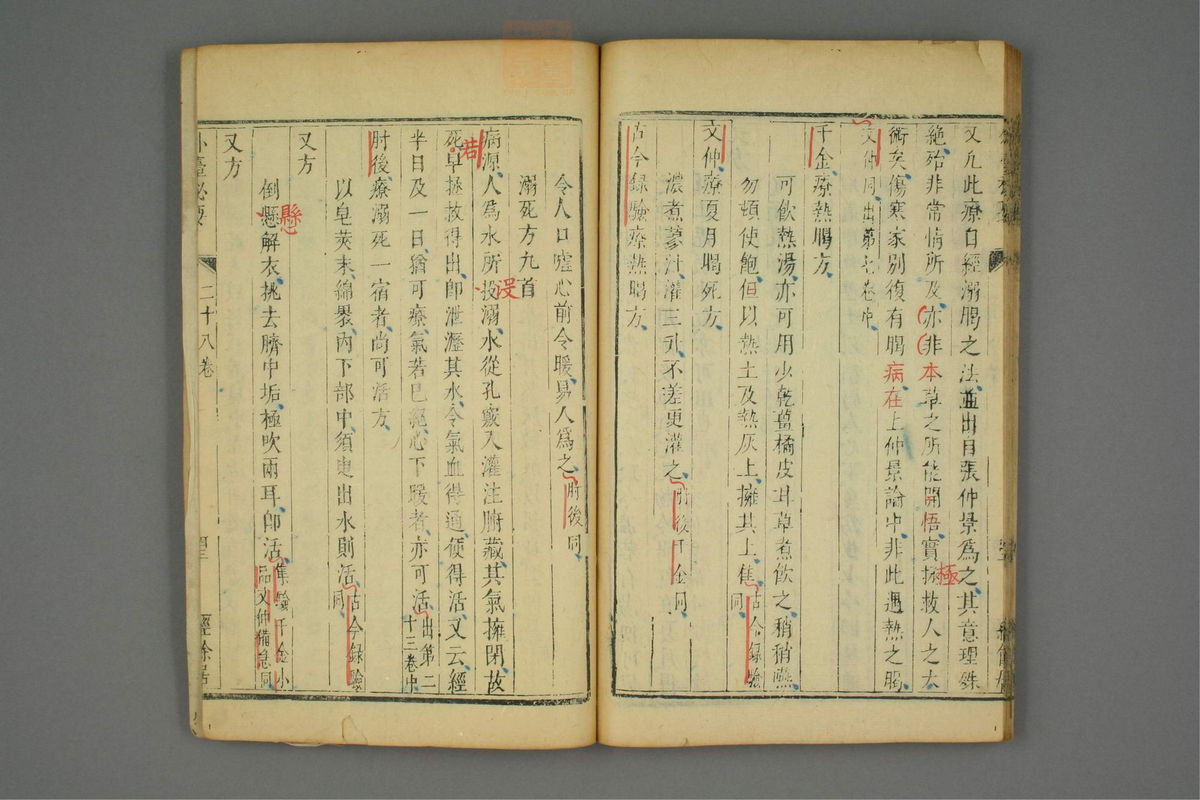 又凡此療自經溺暍之法並出自張仲景爲之其意理殊
絶殆非常情所及亦非本草之所能開悟實拯救人之大
術矣傷寒家別復有暍病在上仲景論中非此遇熱之暍
文仲同出第七卷中
千金療熱暍方
可飲熱湯亦可用少乾薑橘皮甘草煮飲之稍稍嚥
勿頓使飽但以熱土及熱灰上擁其上隹古今録驗同
文仲療夏月暍死方
濃煮蓼汁灌三升不差更灌之肘後千金同
古今録驗療熱暍方
令人口噓心前令暖易人爲之肘後同
溺死方九首
病源人爲水所投溺水從孔竅入灌注腑藏其氣擁閉故
死早拯救得出即泄瀝其水令氣血得通便得活又云經
半日及一日猶可療氣若已絕心下暖者亦可活出第二十三卷中
肘後療溺死一宿者尚可活方
以皂莢末綿裹內下部中須臾出水則活古今録驗同
又方
倒懸解衣挑去臍中垢極吹兩耳即活集驗千金小品文仲備急同
又方
外臺秘要
二十八卷
經餘居
若
没
懸
極